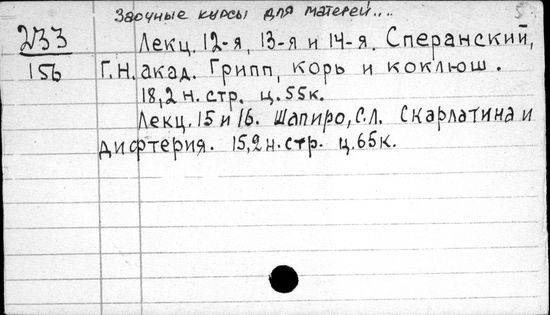 Заочные курсы для матерей....
5
233
156
Лекц. 12-я, 13-я и 14-я. Сперанский,
Г.Н. акад. Грипп, корь и коклюш.
18,2 н. стр. ц. 55к.
Лекц. 15 и 16. Шапиро, С.Л. Скарлатина и
дифтерия. 15,2 н. стр. ц. 65к.